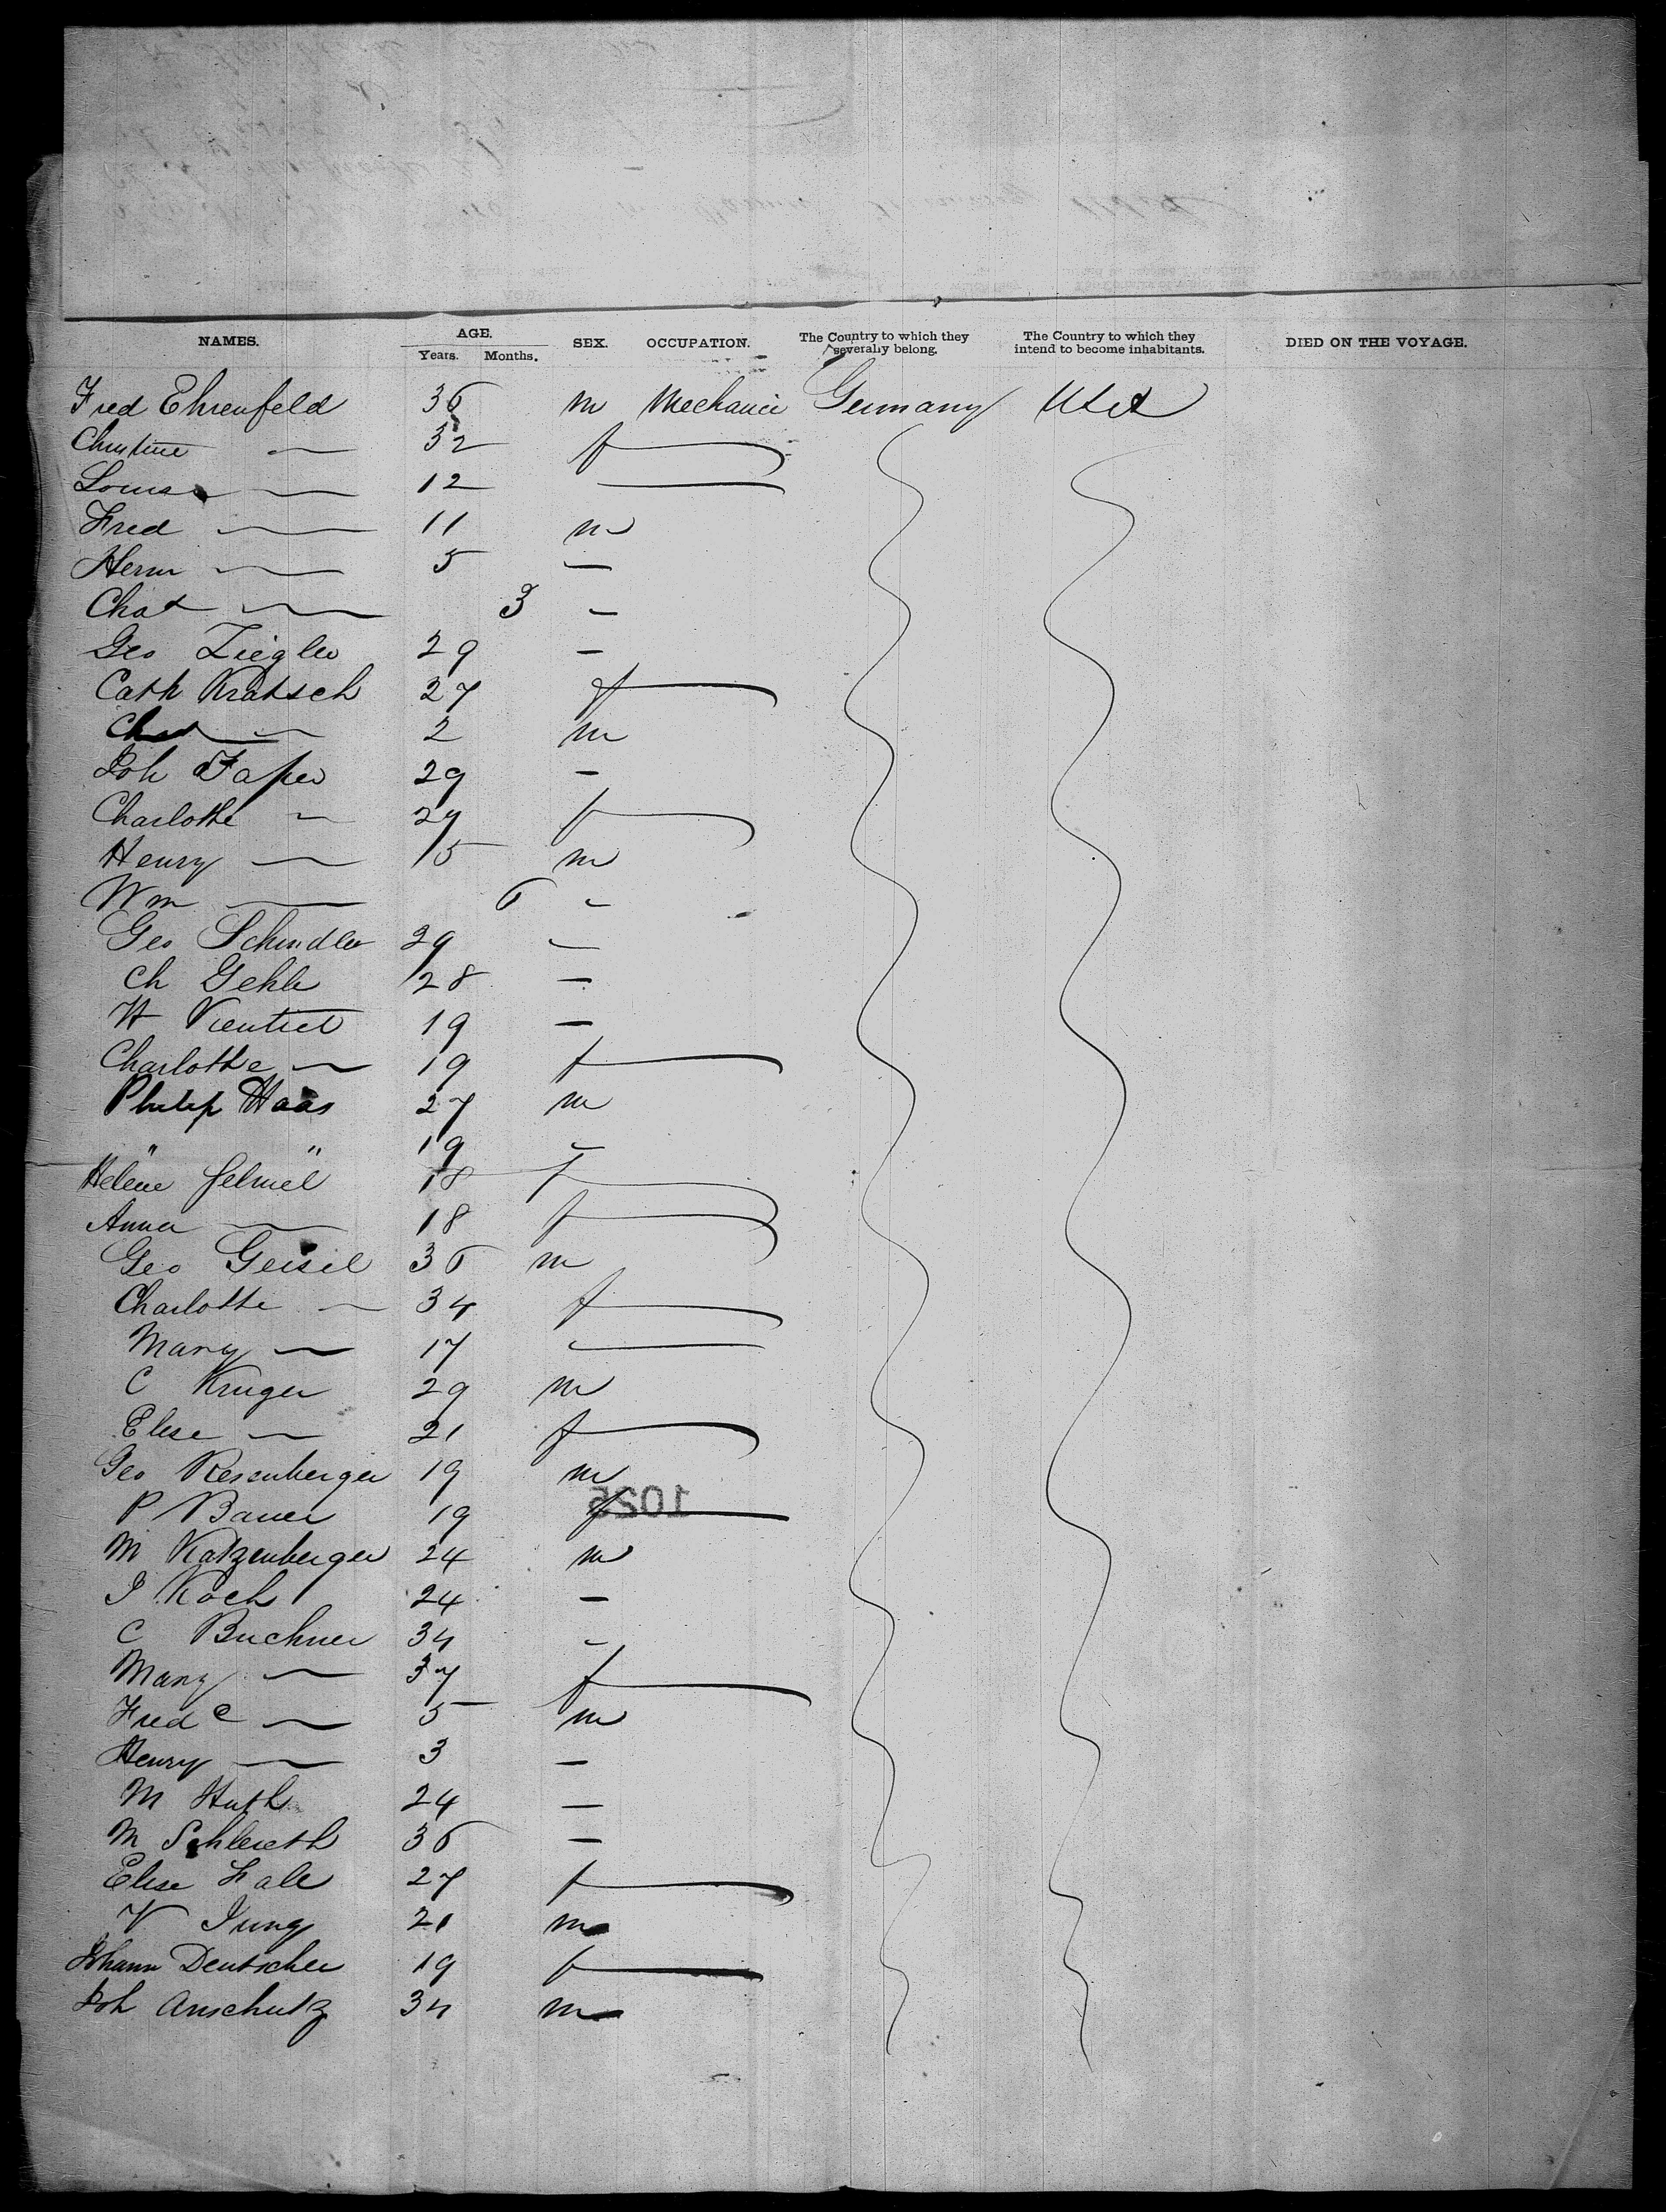 NAMES. AGE. SEX. OCCUPATION. The Country to which they severally belong. The Country to which they intend to become inhabitants. DIED ON THE VOYAGE.
Years. Months.
Fred Ehrenfeld 36 m Mechanic Germany USA
Christine — 32 f
Louisa — 12 —
Fred — 11 m
Herm — 5 —
Chas — 3 —
Geo Ziegler 29 —
Cath Kratsch 27 f
Chas — 2 m
Joh 29 —
Charlotte — 29 f
Henry — 5 m
Wm — 6 —
Geo Schindler 29 —
Ch Gehle 28 —
H 19 —
Charlotte — 19 f
Philip Haas 27 m
" " 19 —
Helene 18 f
Anna — 18 f
Geo Geisel 36 m
Charlotte — 34 f
Mary — 17 —
C Kruger 29 m
Elise — 21 f
Geo Resenberger 19 m
P Bauer 19 f
M Katzenberger 24 m
J Koch 24 —
C Buchner 34 —
Mary — 37 f
Fredc — 5 m
Henry — 3 —
M Huth 24 —
M Schleieth 36 —
Elise 27 f
V Jung 21 m
Johann Deutscher 19 f
Joh Anschutz 34 m
1025